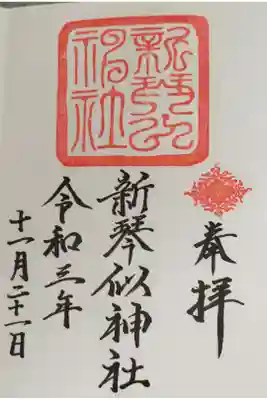 奉拝
新琴似神社
新琴似神社
令和三年
十一月二十一日